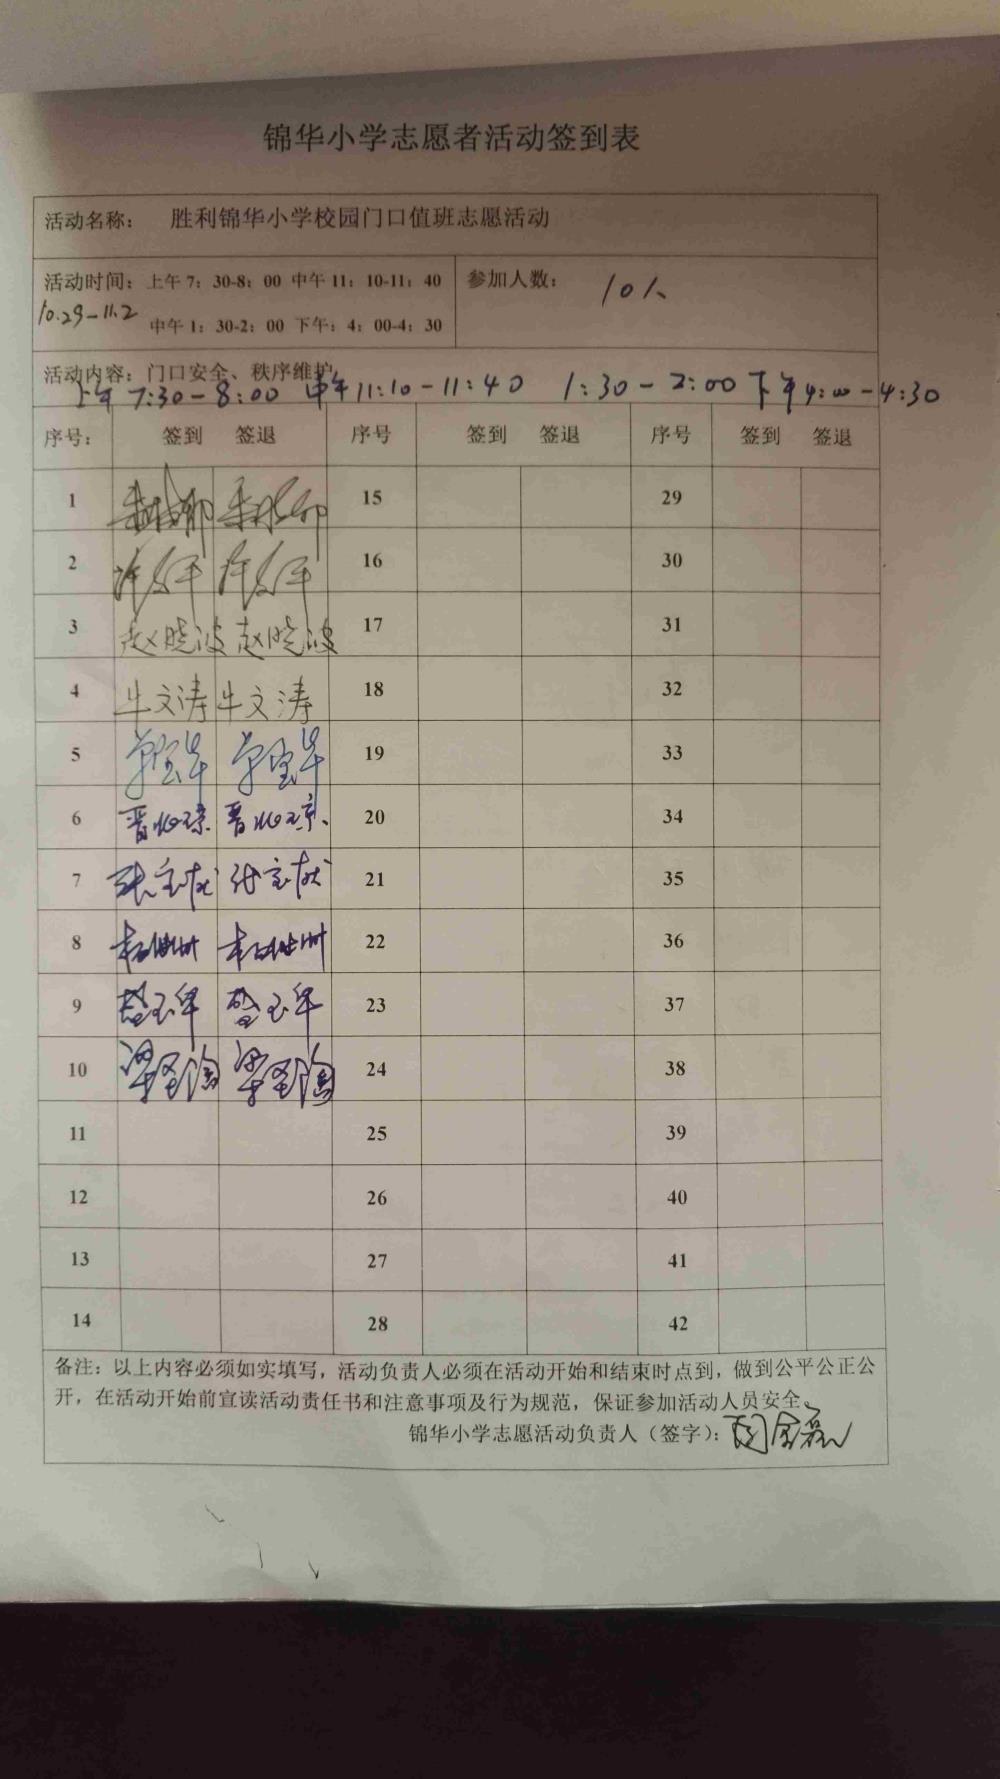 锦华小学志愿者活动签到表
活动名称： 胜利锦华小学校园门口值班志愿活动
活动时间：上午7：30-8：00 中午11：10-11：40 参加人数： 10人
10.29-11.2 中午1：30-2：00 下午：4：00-4：30
活动内容：门口安全、秩序维护
上午 7:30-8:00 中午11:10-11:40 1:30-2:00 下午4:00-4:30
序号： 签到 签退 序号 签到 签退 序号 签到 签退
1 15 29
2 16 30
3 赵晓波 赵晓波 17 31
4 牛文涛 牛文涛 18 32
5 19 33
6 20 34
7 21 35
8 22 36
9 23 37
10 24 38
11 25 39
12 26 40
13 27 41
14 28 42
备注：以上内容必须如实填写，活动负责人必须在活动开始和结束时点到，做到公平公正公
开，在活动开始前宣读活动责任书和注意事项及行为规范，保证参加活动人员安全。
锦华小学志愿活动负责人（签字）：